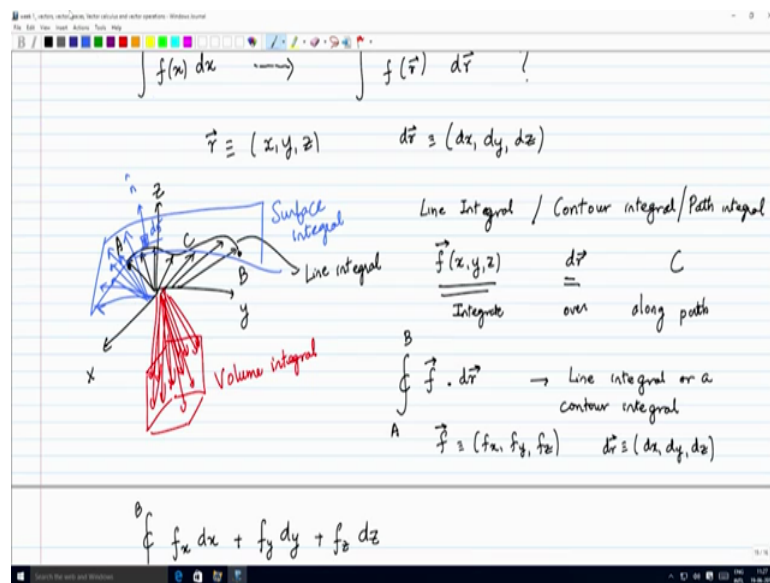 week 1_ vectors, vector spaces, Vector calculus and vector operations - Windows Journal
File Edit View Insert Actions Tools Help
∫ f(x) dx ⟶ ∫ f(r⃗) dr⃗ ?
r⃗ ≡ (x, y, z) dr⃗ ≡ (dx, dy, dz)
n̂
z
Surface integral
A
C
B
Line integral
y
x
Volume integral
Line Integral / Contour integral / Path integral
f⃗(x, y, z) dr⃗ C
Integrate over along path
B
∮ f⃗ . dr⃗ → Line integral or a
contour integral
A
f⃗ ≡ (fx, fy, fz) dr⃗ ≡ (dx, dy, dz)
B
∮ fx dx + fy dy + fz dz
Search the web and Windows
ENG